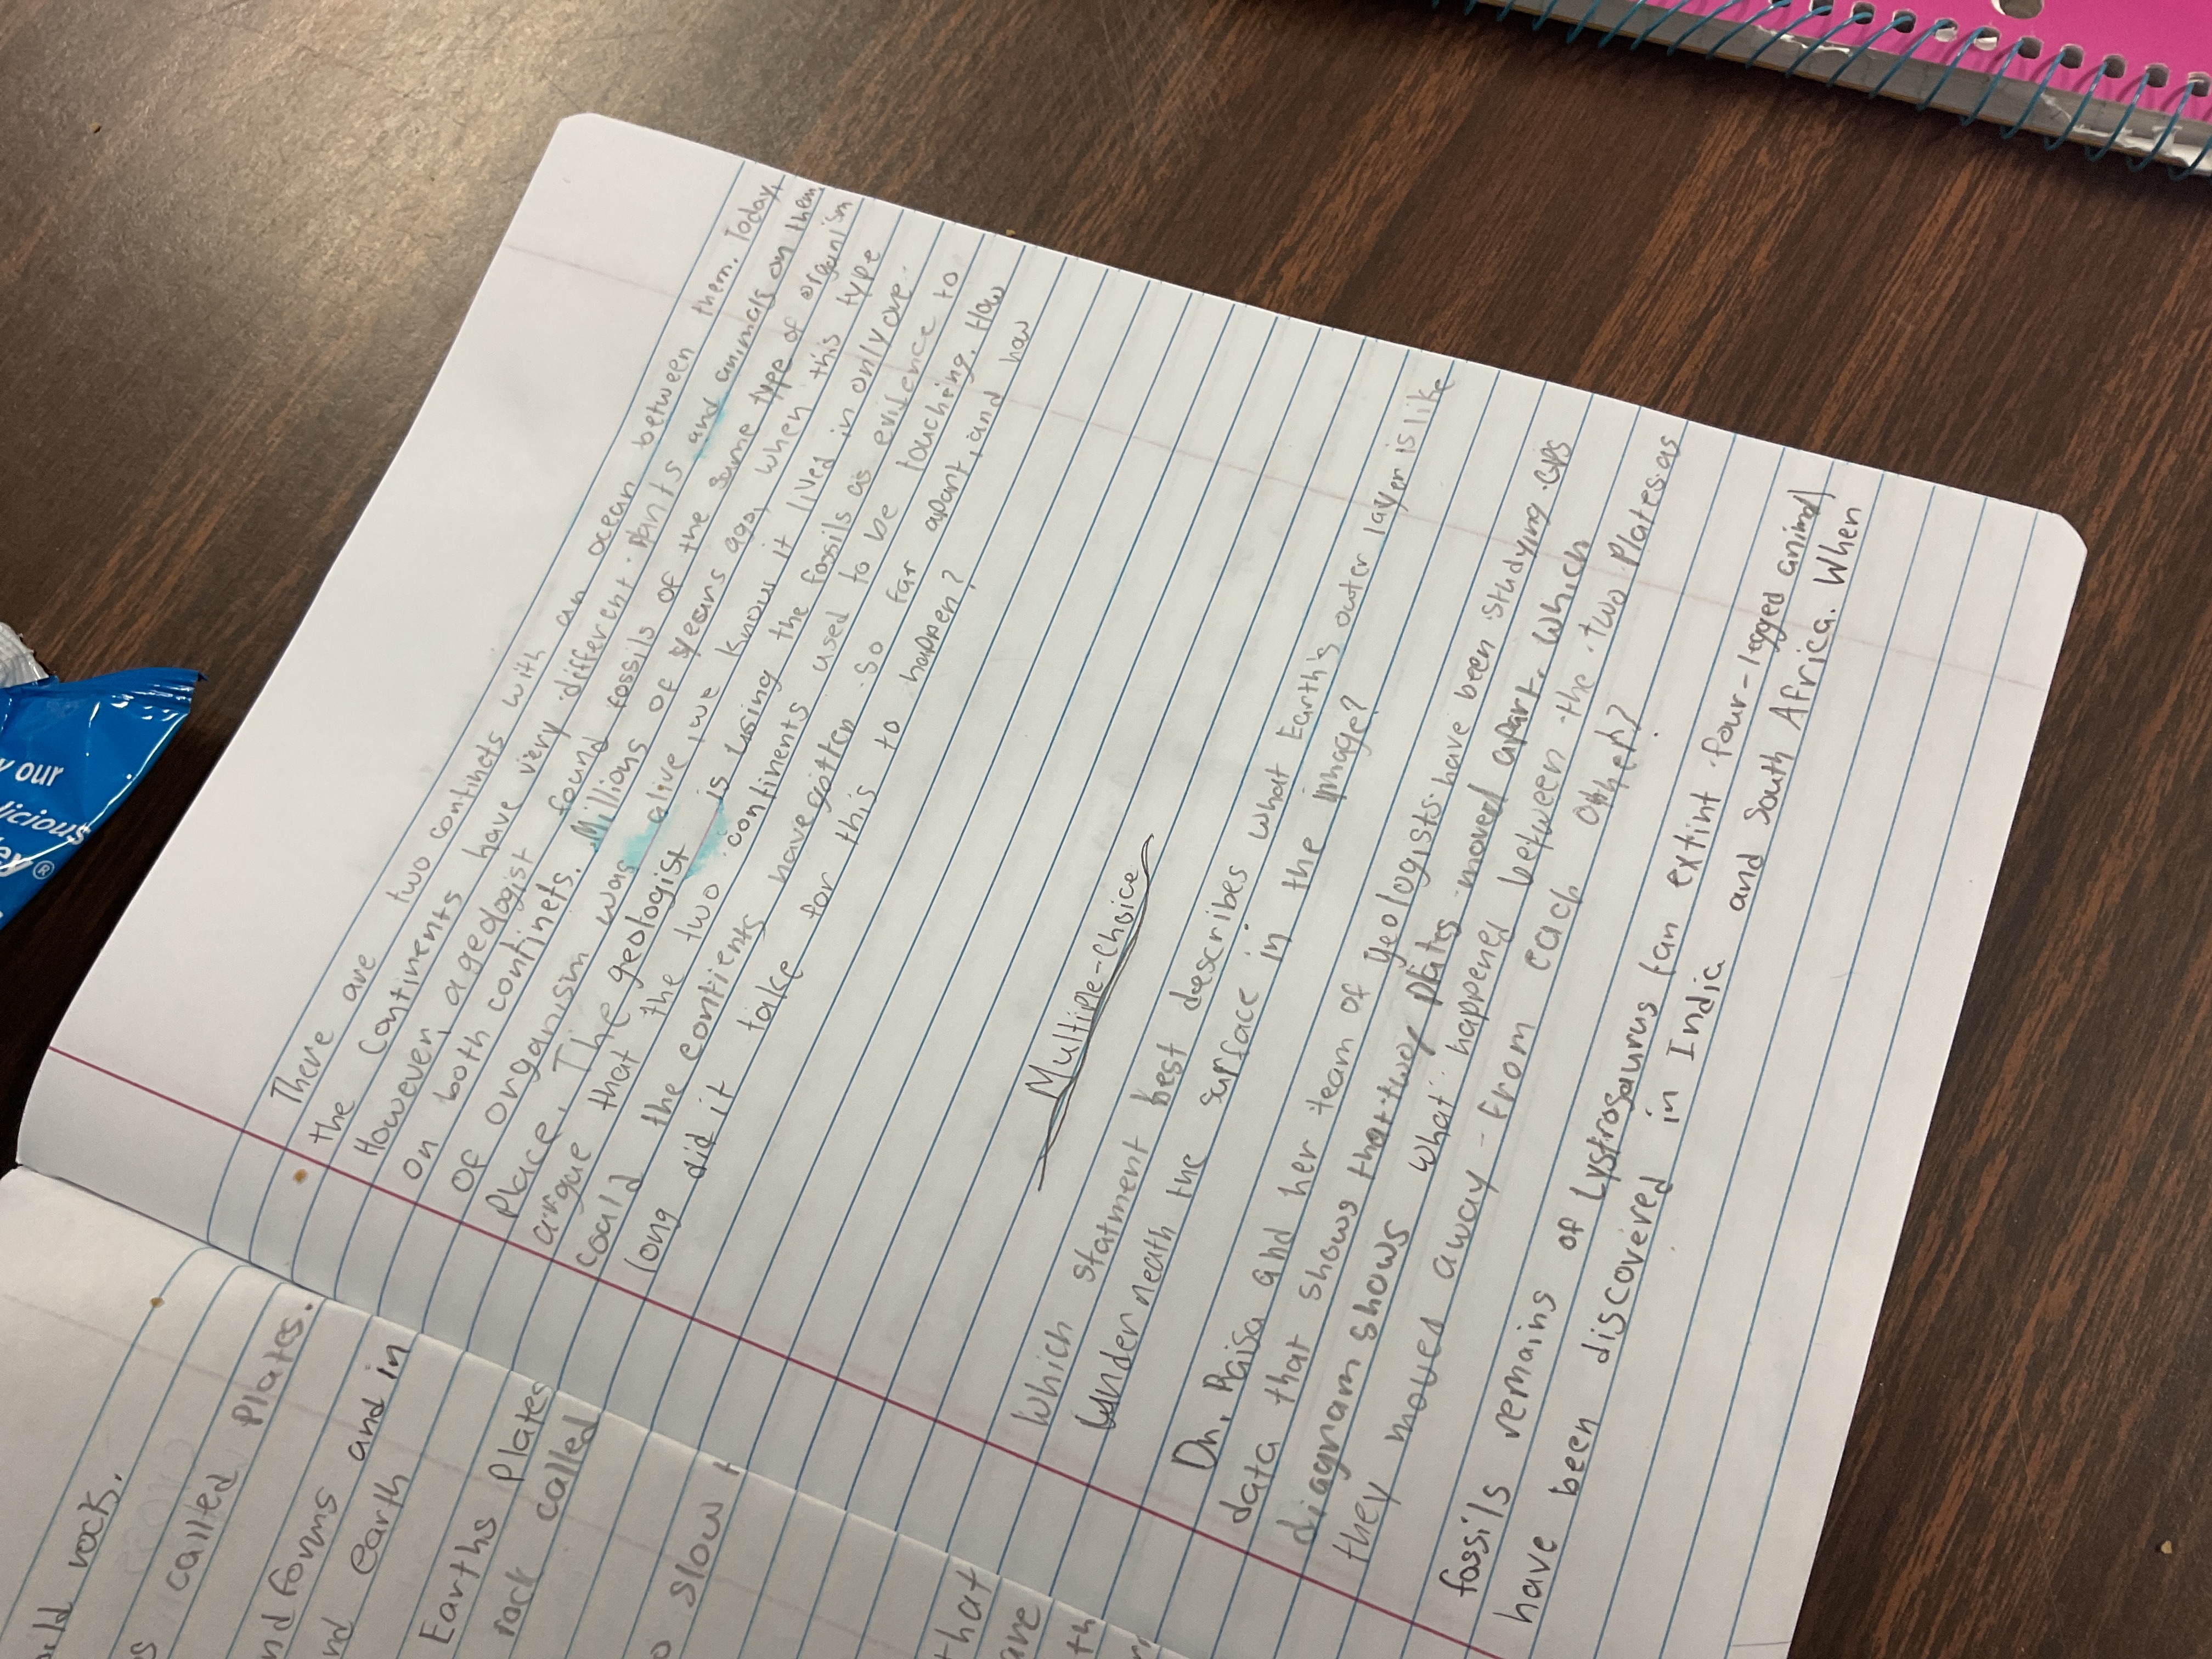 There are two continets with an ocean between them. Today,
the continents have very different. Plants and animals on them
However, a geologist found fossils of the same type of organism
on both continets. Millions of years ago, when this type
of organism was alive, we know it lived in only one.
place. The geologist is using the fossils as evidence to
argue that the two continents used to be touching. How
could the contients have gotten so far apart, and how
long did it take for this to happen?
Multiple-Choice
Which statment best describes what Earth's outer layer is like
underneath the surface in the image?
Dr. Paisa and her team of geologists have been studying GPS
data that shows that two plates moved apart. Which
diagram shows what happened between the two Plates as
they moved away - from each other?
fossils remains of Lystrosaurus (an extint four-legged animal)
have been discovered in India and South Africa. When
rock.
called Plates.
forms and in
earth
Earths Plates
rock called
slow
that
are
th
our